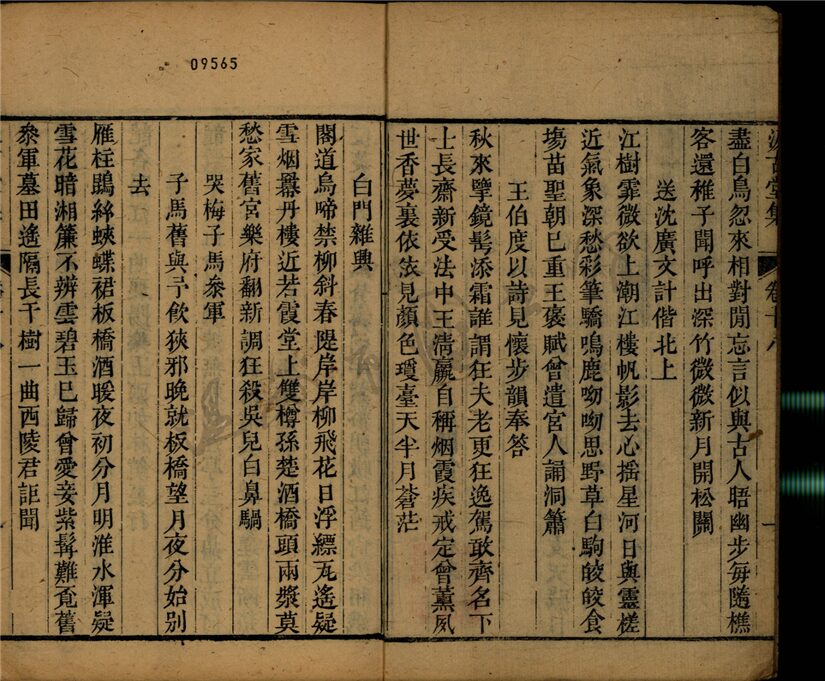 09565
盡白鳥忽來相對閒忘言似與古人晤幽步每隨樵
客還稚子聞呼出深竹微微新月開松關
送沈廣文計偕北上
江樹霏微欲上潮江樓帆影去心搖星河日與靈槎
近氣象深愁彩筆驕鳴鹿呦呦思野草白駒皎皎食
場苗聖朝已重王褒賦曾遣宮人誦洞簫
王伯度以詩見懷步韻奉答
秋來孽鏡髩添霜誰謂狂夫老更狂逸駕敢齊名下
上長齋新受法中王淸羸自稱烟霞疾戒定曾薰夙
世香夢裏依依見顏色瓊臺天半月蒼茫
白門雜興
閣道烏啼禁柳斜春隄岸岸柳飛花日浮縹瓦遙疑
雪烟羃丹樓近若霞堂上雙樽孫楚酒橋頭兩槳莫
愁家舊宮樂府翻新調狂殺吳兒白鼻騧
哭梅子馬叅軍
子馬舊與予飲狹邪晚就板橋望月夜分始別
去
雁柱鵾絲蛺蝶裙板橋酒暖夜初分月明淮水渾疑
雪花暗湘簾不辨雲碧玉已歸曾愛妾紫髯難覔舊
叅軍墓田遙隔長干樹一曲西陵君詎聞